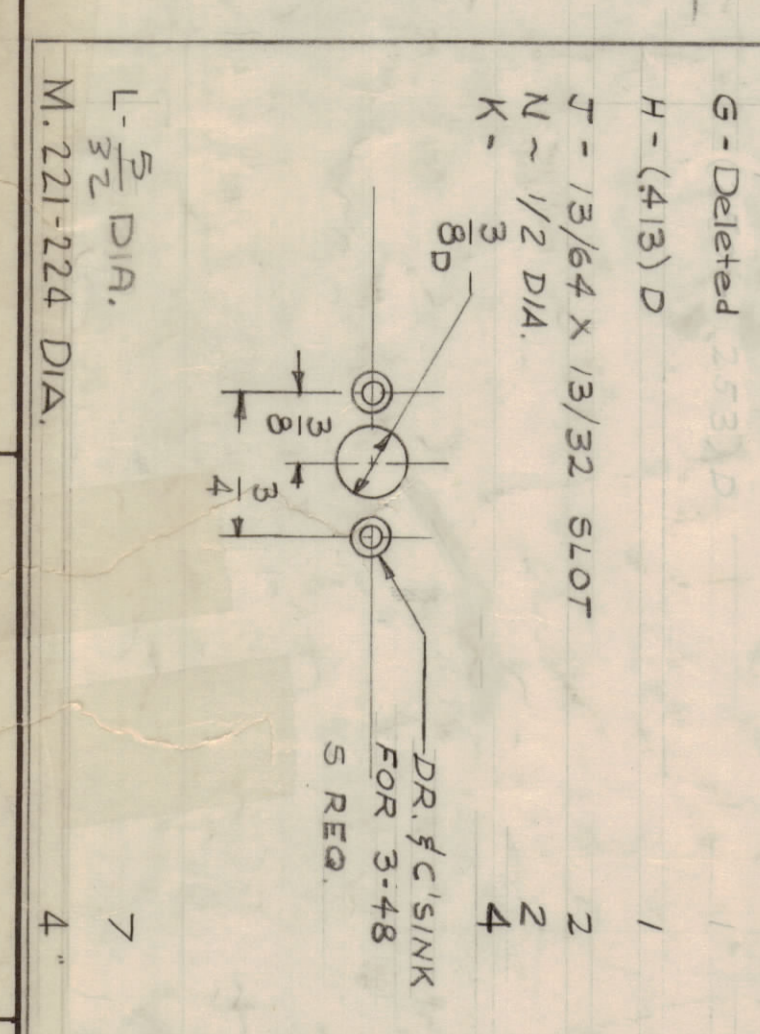 G - Deleted .253) D 1
H - (.413) D 1
J - 13/64 X 13/32 SLOT 2
N ~ 1/2 DIA. 2
K - 4
3/8 D
DR. & C'SINK
FOR 3-48
5 REQ.
3/8
3/4
L - 5/32 DIA. 7
M. 221-224 DIA. 4 "